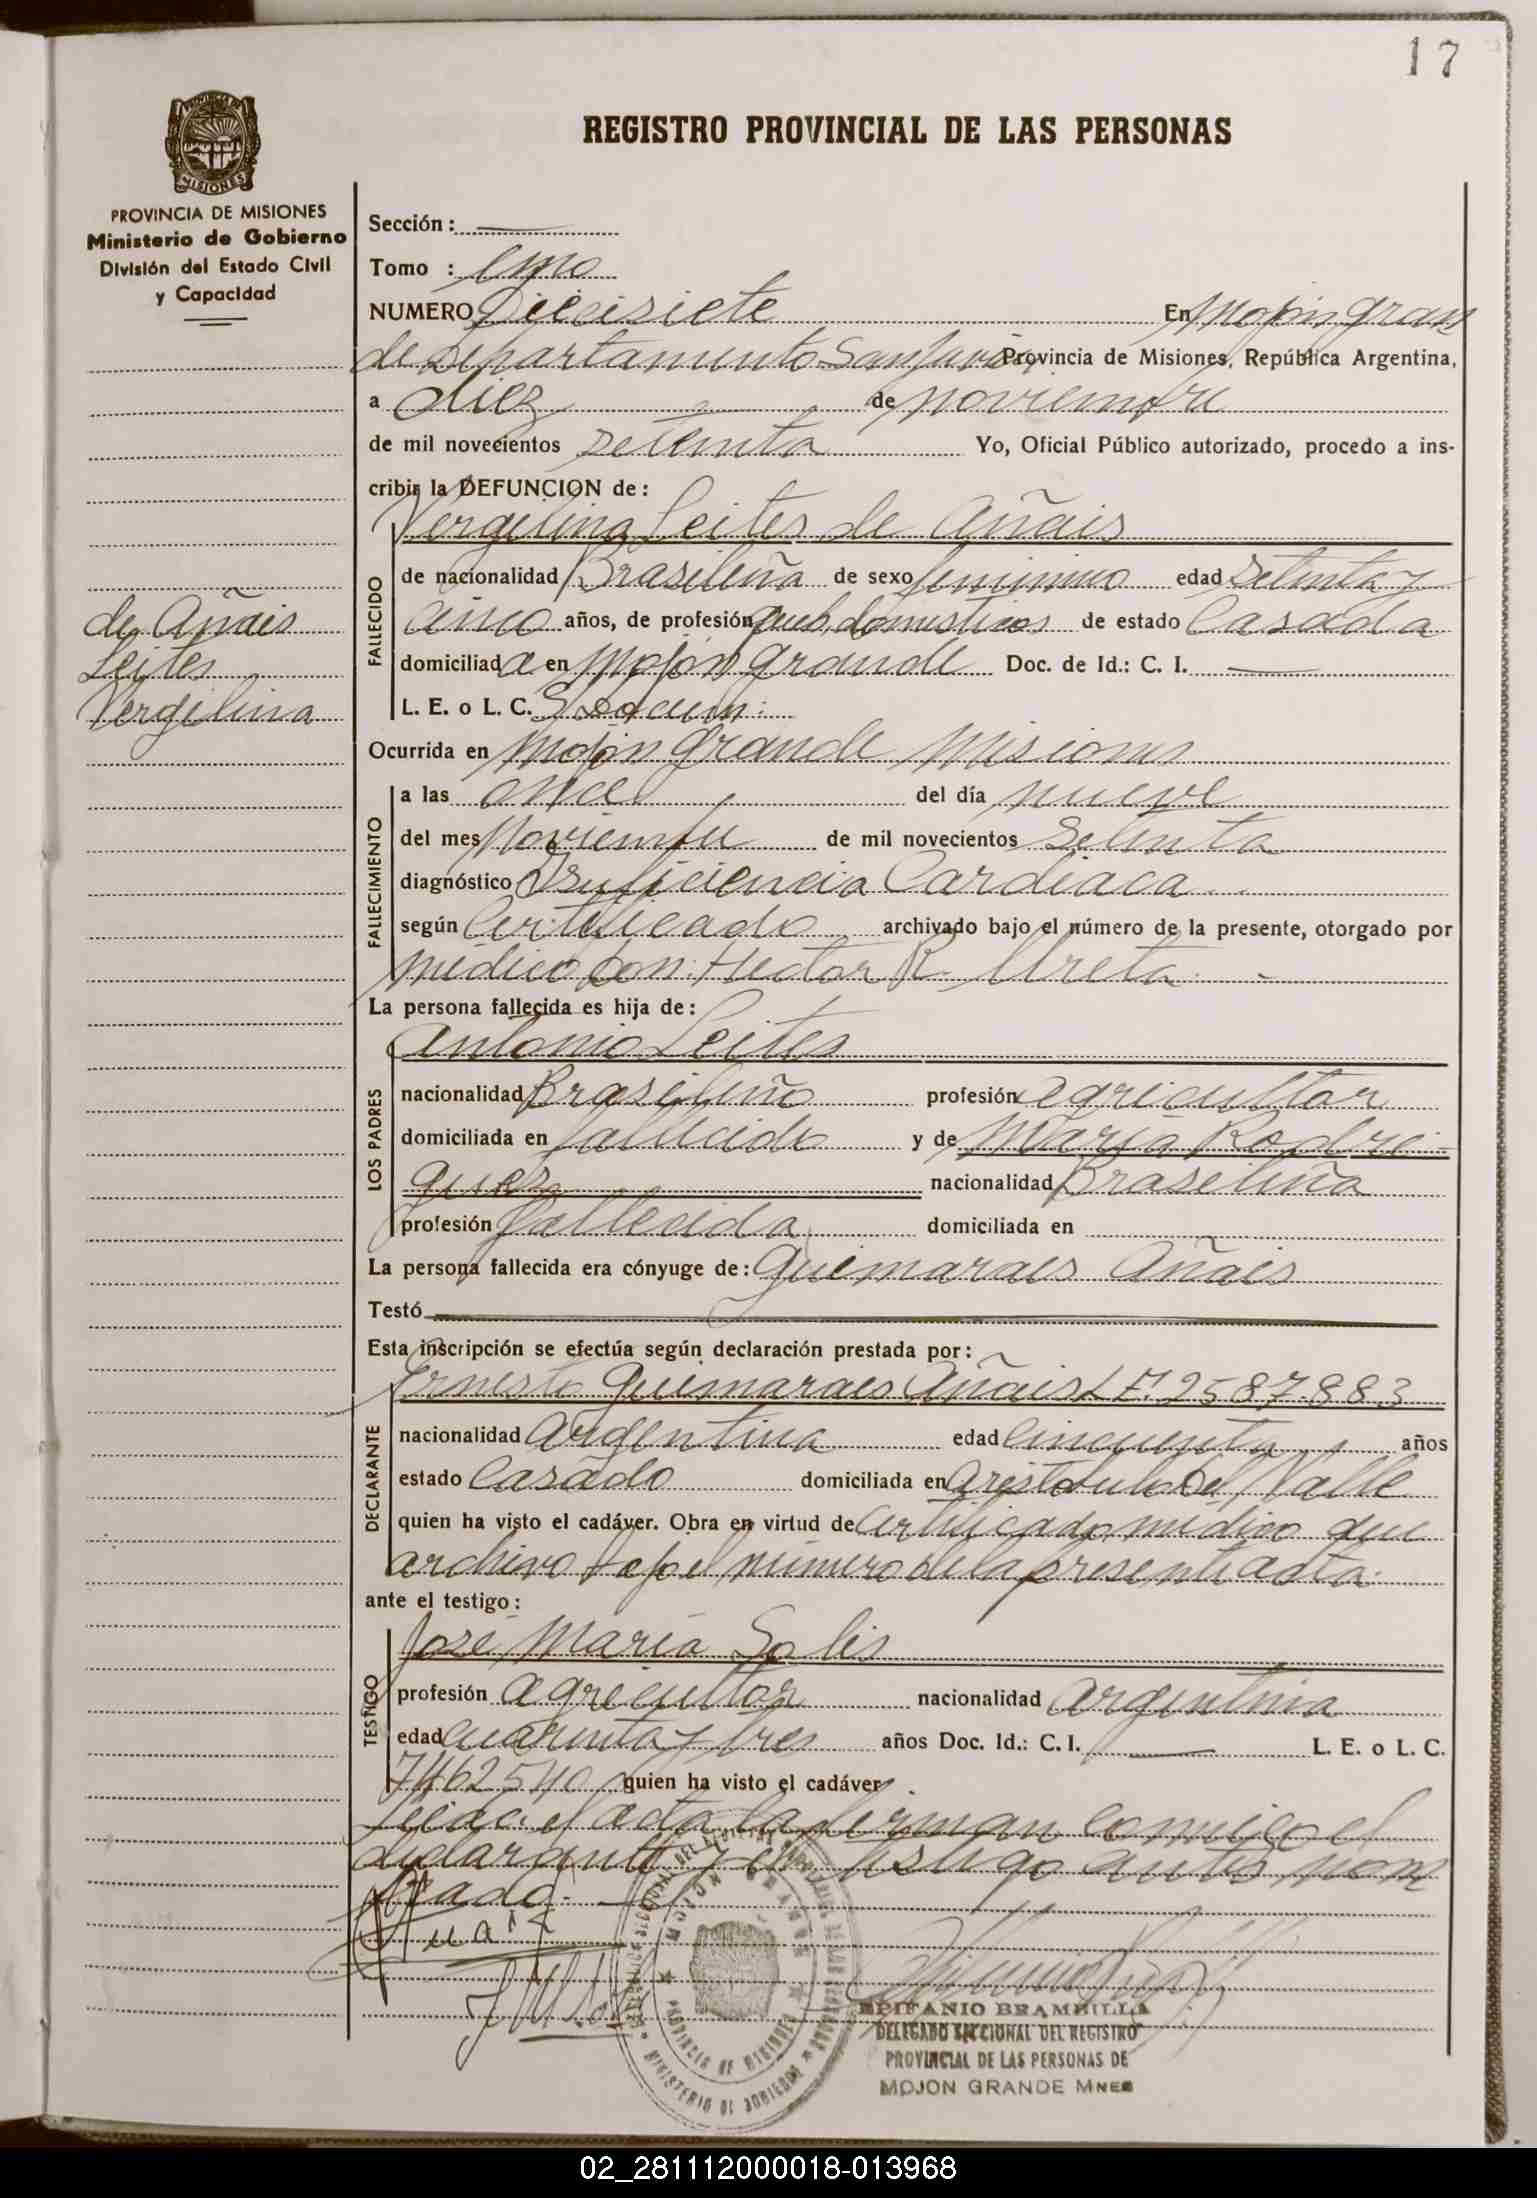 17
REGISTRO PROVINCIAL DE LAS PERSONAS
PROVINCIA DE MISIONES
Ministerio de Gobierno
División del Estado Civil
y Capacidad
Sección: —
Tomo : uno
NUMERO Diecisiete En Mojón Gran
de Departamento San Javier Provincia de Misiones, República Argentina,
a diez de noviembre
de mil novecientos setenta Yo, Oficial Público autorizado, procedo a ins-
cribir la DEFUNCION de:
Vergilina Leites de Añais
FALLECIDO
de nacionalidad Brasileña de sexo femenino edad setenta y
cinco años, de profesión queh. domesticos de estado Casada
domiciliada en Mojón Grande Doc. de Id.: C. I. —
L. E. o L. C. S/docum:
de Añais
Leites
Vergilina
Ocurrida en Mojón Grande Misiones
FALLECIMIENTO
a las once del día nueve
del mes Noviembre de mil novecientos setenta
diagnóstico Insuficiencia Cardiaca
según Certificado archivado bajo el número de la presente, otorgado por
médico Don: Hector R. Ureta. -
La persona fallecida es hija de:
Antonio Leites
LOS PADRES
nacionalidad Brasileño profesión agricultor
domiciliada en fallecido y de María Rodri-
guez nacionalidad Brasileña
profesión fallecida domiciliada en
La persona fallecida era cónyuge de: Guimaraes Añais
Testó
Esta inscripción se efectúa según declaración prestada por:
Ernesto Guimaraes Añais L E. 2587.883
DECLARANTE
nacionalidad Argentina edad cincuenta años
estado Casado domiciliada en Aristobulo Del Valle
quien ha visto el cadáver. Obra en virtud de Certificado médico que
archivo bajo el número de la presente acta.
ante el testigo:
José María Solis
TESTIGO
profesión agricultor nacionalidad argentina
edad cuarenta y tres años Doc. Id.: C. I. — L. E. o L. C.
7462540 quien ha visto el cadáver
Leida el acta la firman conmigo el
declarante y el testigo antes nom
brado.
MOJON GRANDE
PROVINCIA DE MISIONES
MINISTERIO DE GOBIERNO
EPIFANIO BRAMBILLA
DELEGADO SECCIONAL DEL REGISTRO
PROVINCIAL DE LAS PERSONAS DE
MOJON GRANDE MNES
02_281112000018-013968